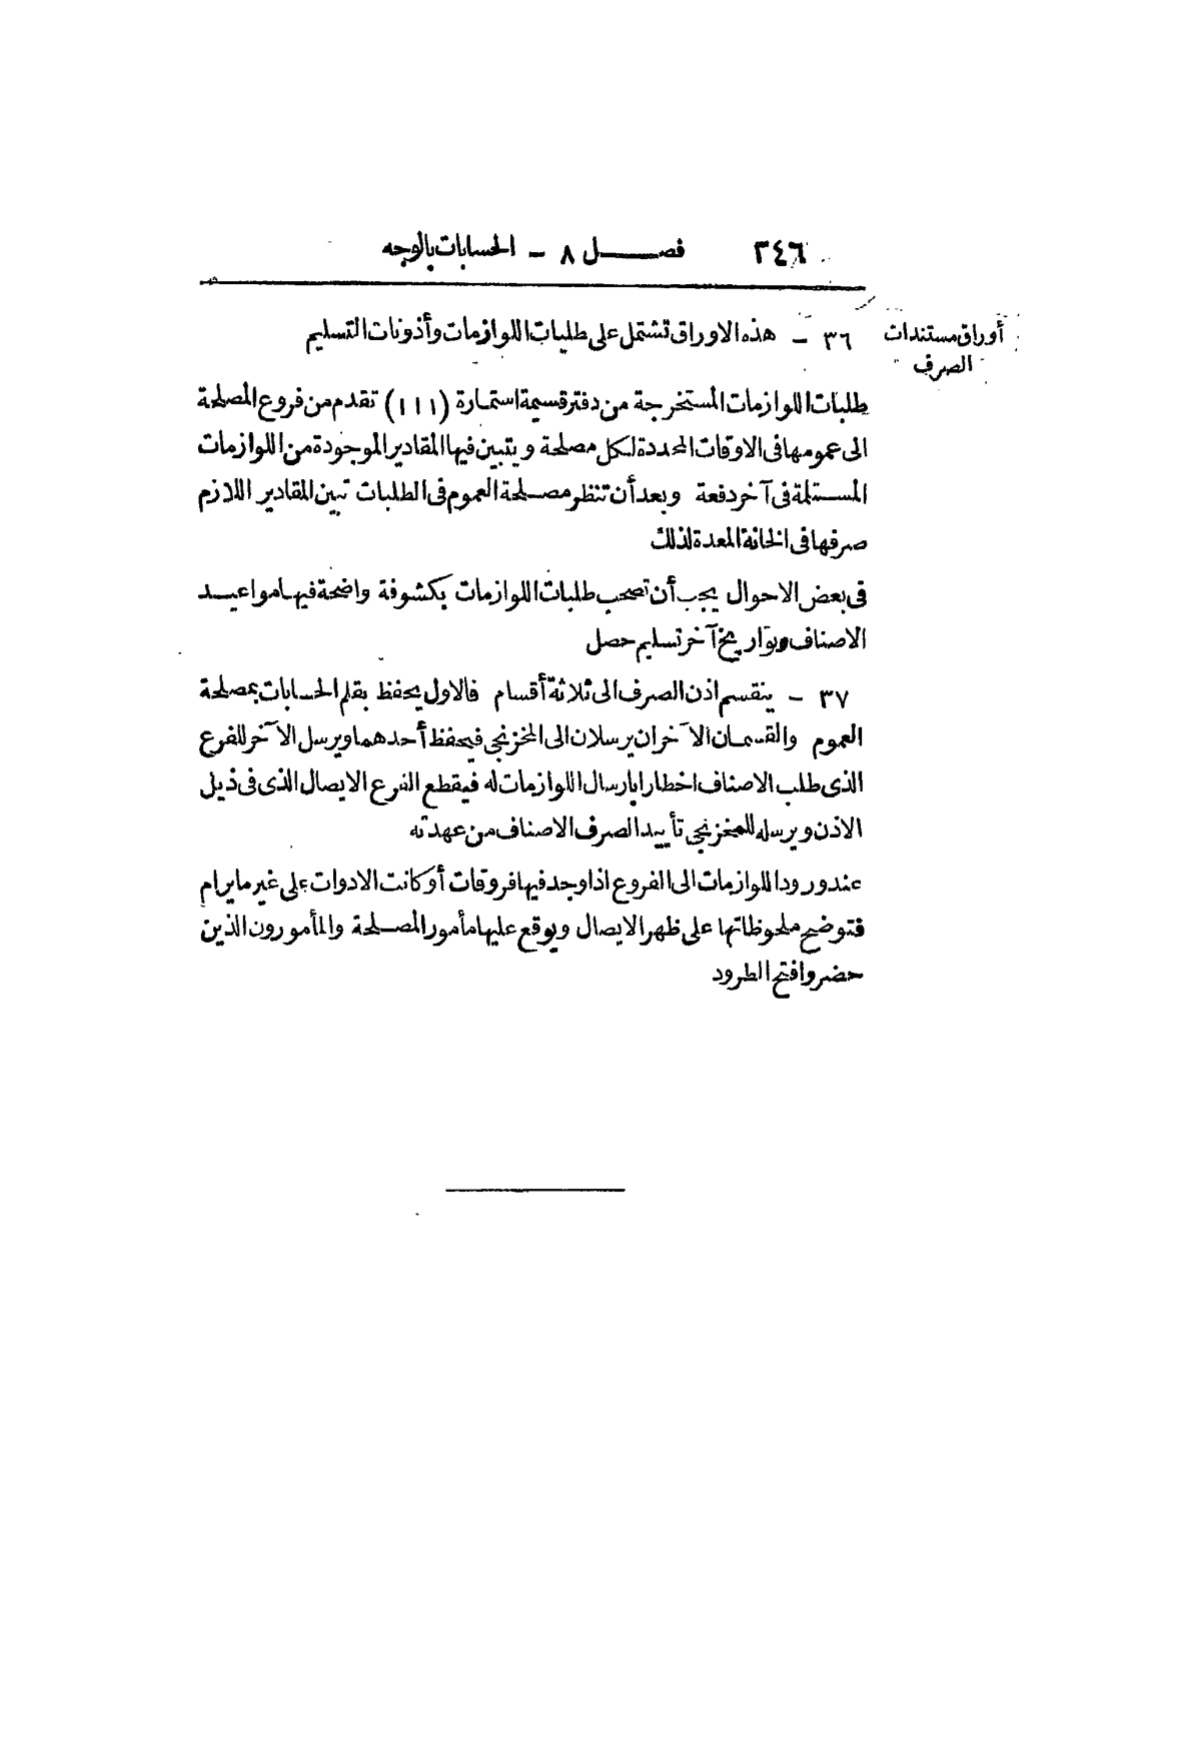 ٣٤٦ فصل ٨ - الحسابات بالوجه
أوراق مستندات
الصرف
٣٦ - هذه الاوراق تشتمل على طلبات اللوازمات وأذونات التسليم
طلبات اللوازمات المستخرجة من دفتر قسيمة استمارة (١١١) تقدم من فروع المصلحة
الى عمومها فى الاوقات المحددة لكل مصلحة ويتبين فيها المقادير الموجودة من اللوازمات
المستلمة فى آخر دفعة وبعد أن تنظر مصلحة العموم فى الطلبات تبين المقادير اللازم
صرفها فى الخانة المعدة لذلك
فى بعض الاحوال يجب أن تصحب طلبات اللوازمات بكشوفة واضحة فيها مواعيد
الاصناف وتواريخ آخر تسليم حصل
٣٧ - ينقسم اذن الصرف الى ثلاثة أقسام فالاول يحفظ بقلم الحسابات بمصلحة
العموم والقسمان الآخران يرسلان الى المخزنجى فيحفظ أحدهما ويرسل الآخر للفرع
الذى طلب الاصناف اخطارا بارسال اللوازمات له فيقطع الفرع الايصال الذى فى ذيل
الاذن ويرسله للمخزنجى تأييدا لصرف الاصناف من عهدته
عند ورود اللوازمات الى الفروع اذا وجد فيها فروقات أو كانت الادوات على غير ما يرام
فتوضح ملحوظاتها على ظهر الايصال ويوقع عليها مأمور المصلحة والمأمورون الذين
حضروا فتح الطرود